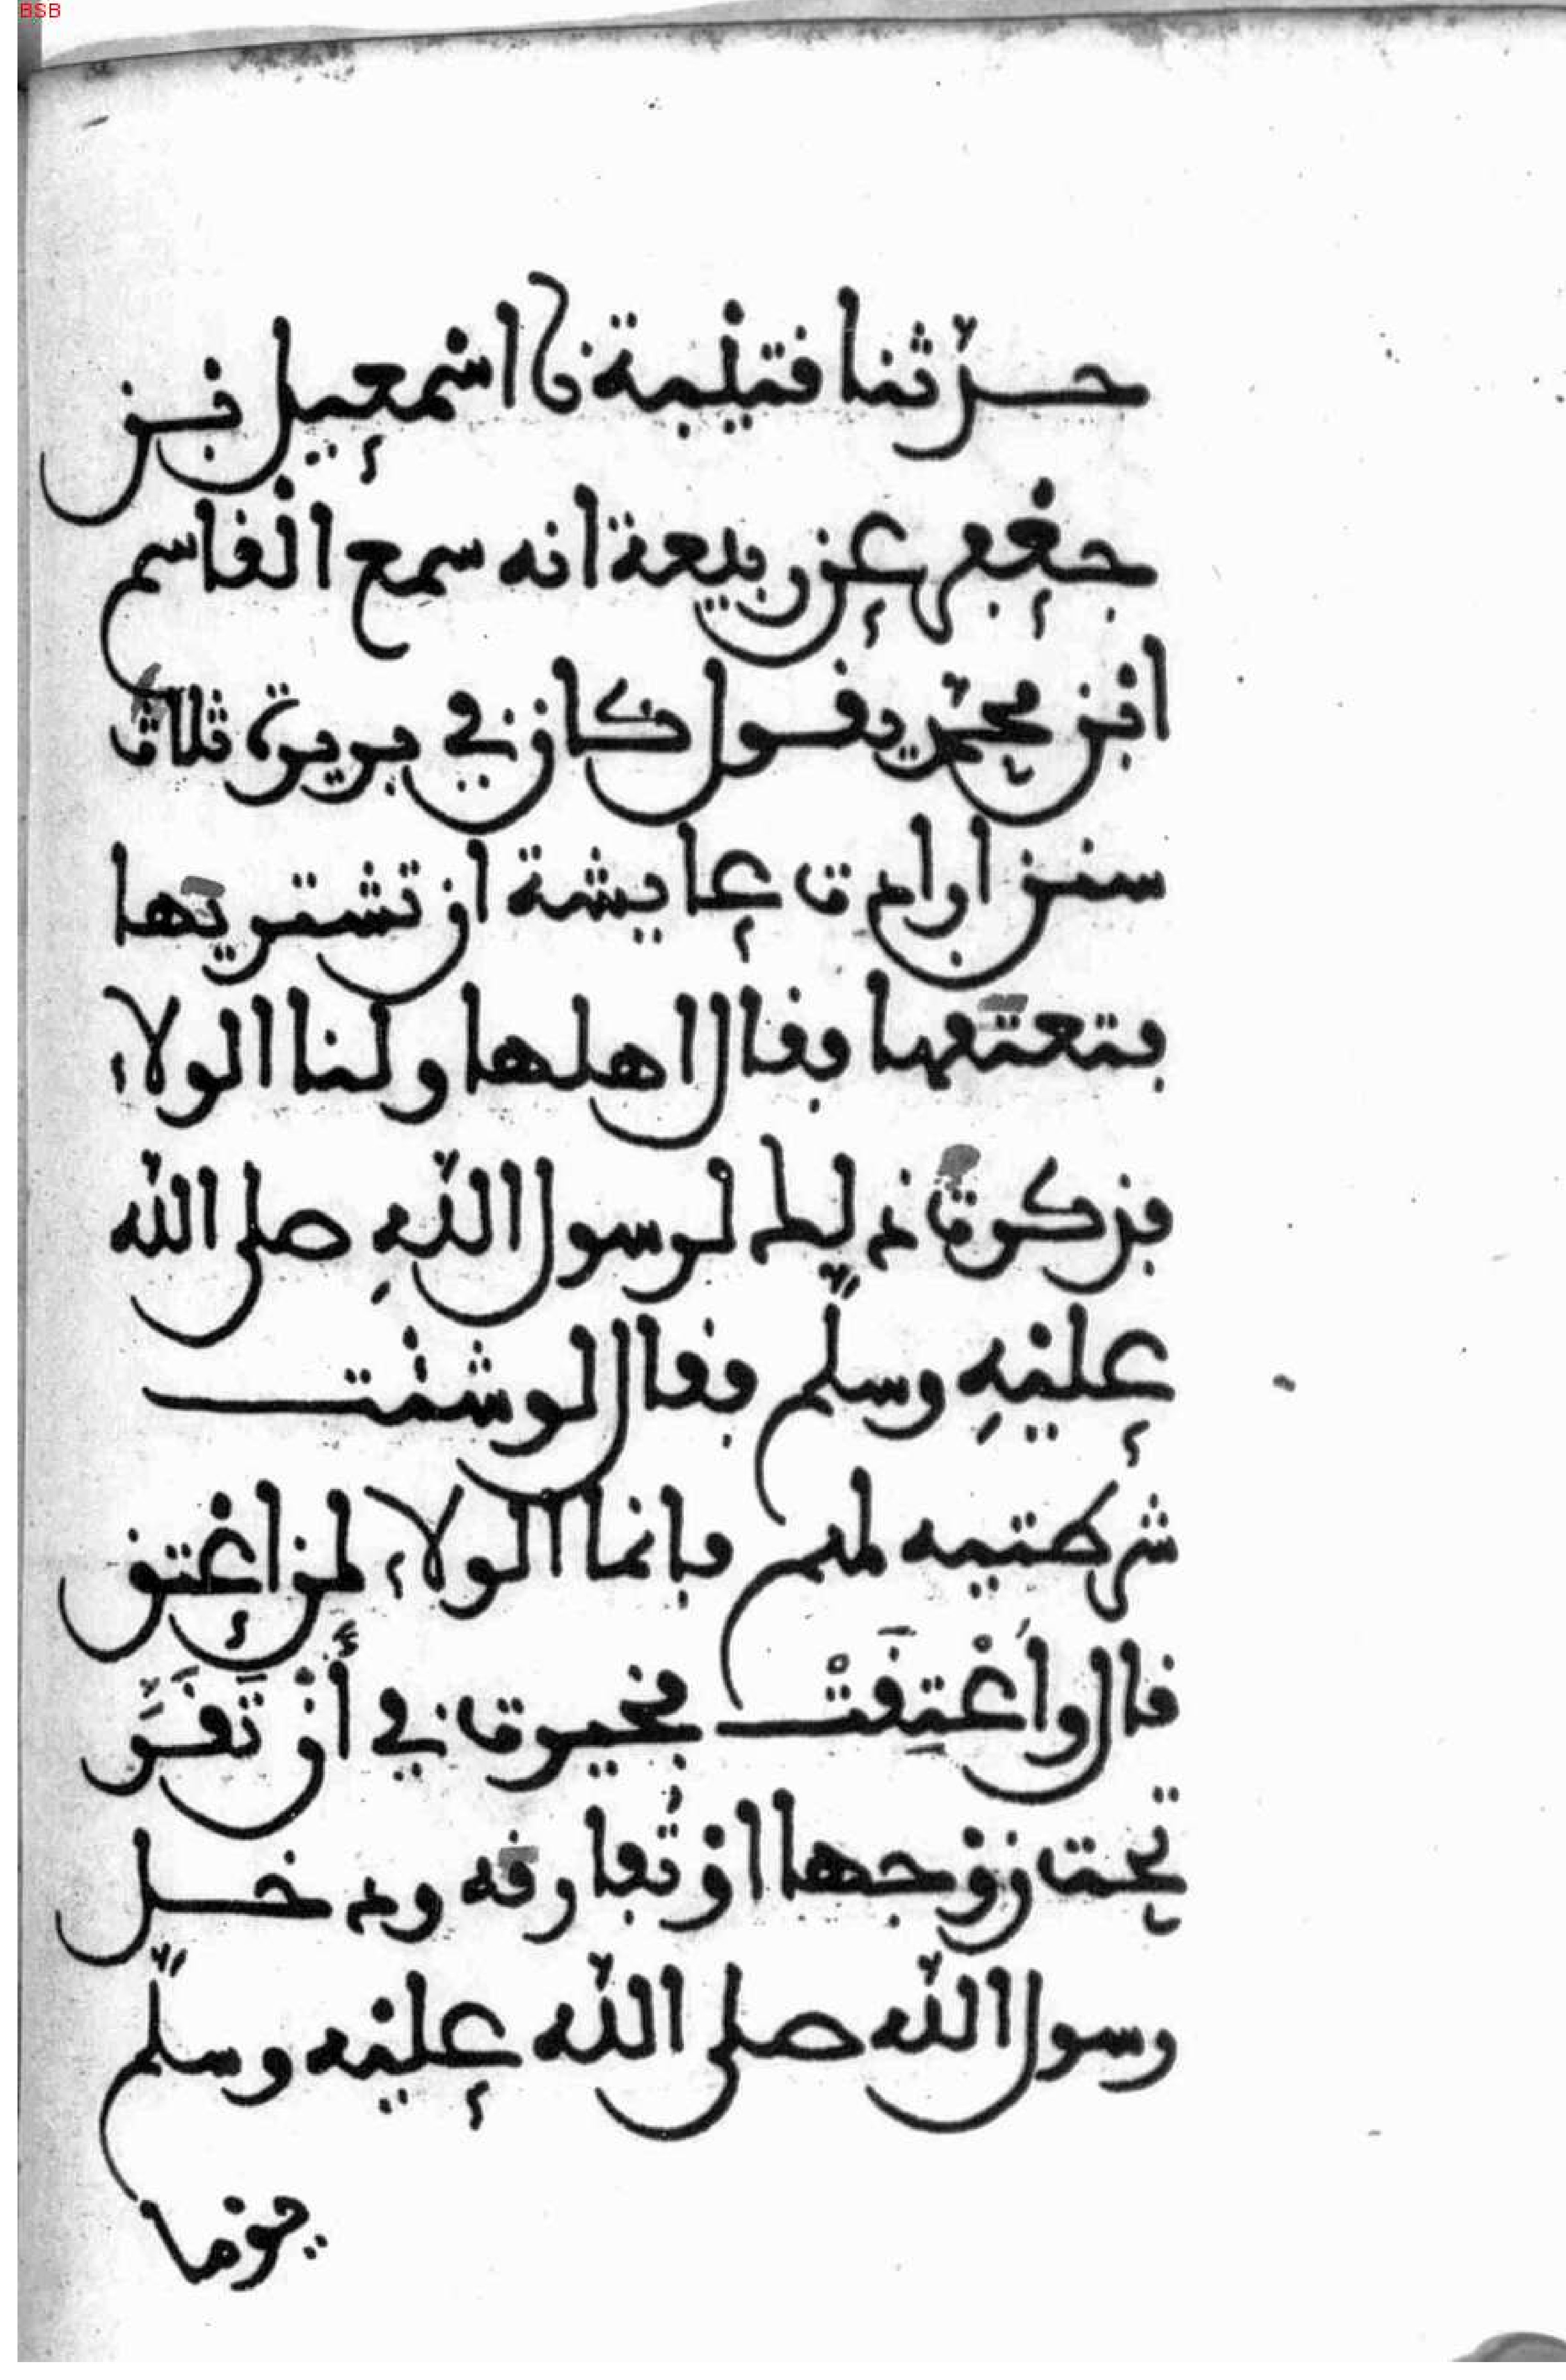 BSB
حدّثنا قتيْبة نا اسْمعيل بْن
جعْفر عن ربيعة انه سمع الْقاسم
ابْن محمّد يقول كان في بريرة ثلاث
سنن ارادت عايشة ان تشتريها
فتعتقها فقال اهلها ولنا الولاء
فذكرت ذلك لرسول اللّهِ صلى اللّه
عليْهِ وسلّم فقال لو شئْت
شرطتيه لهم فانما الولاء لمن اعْتق
قال واَعْتِقَتْ فخيرت في أَنْ تَقَِرَّ
تحت زوْجها اوْ تُفارقه ودخل
رسول اللّه صلى اللّه عليْه وسلّم
يوْما